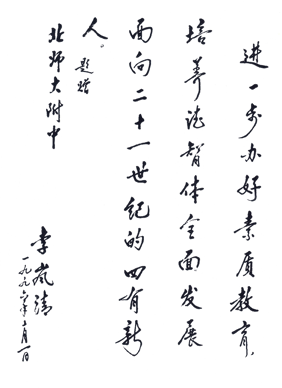 进一步办好素质教育，
培养德智体全面发展
面向二十一世纪的四有新
人。
题赠
北师大附中
李岚清
一九九六年二月一日